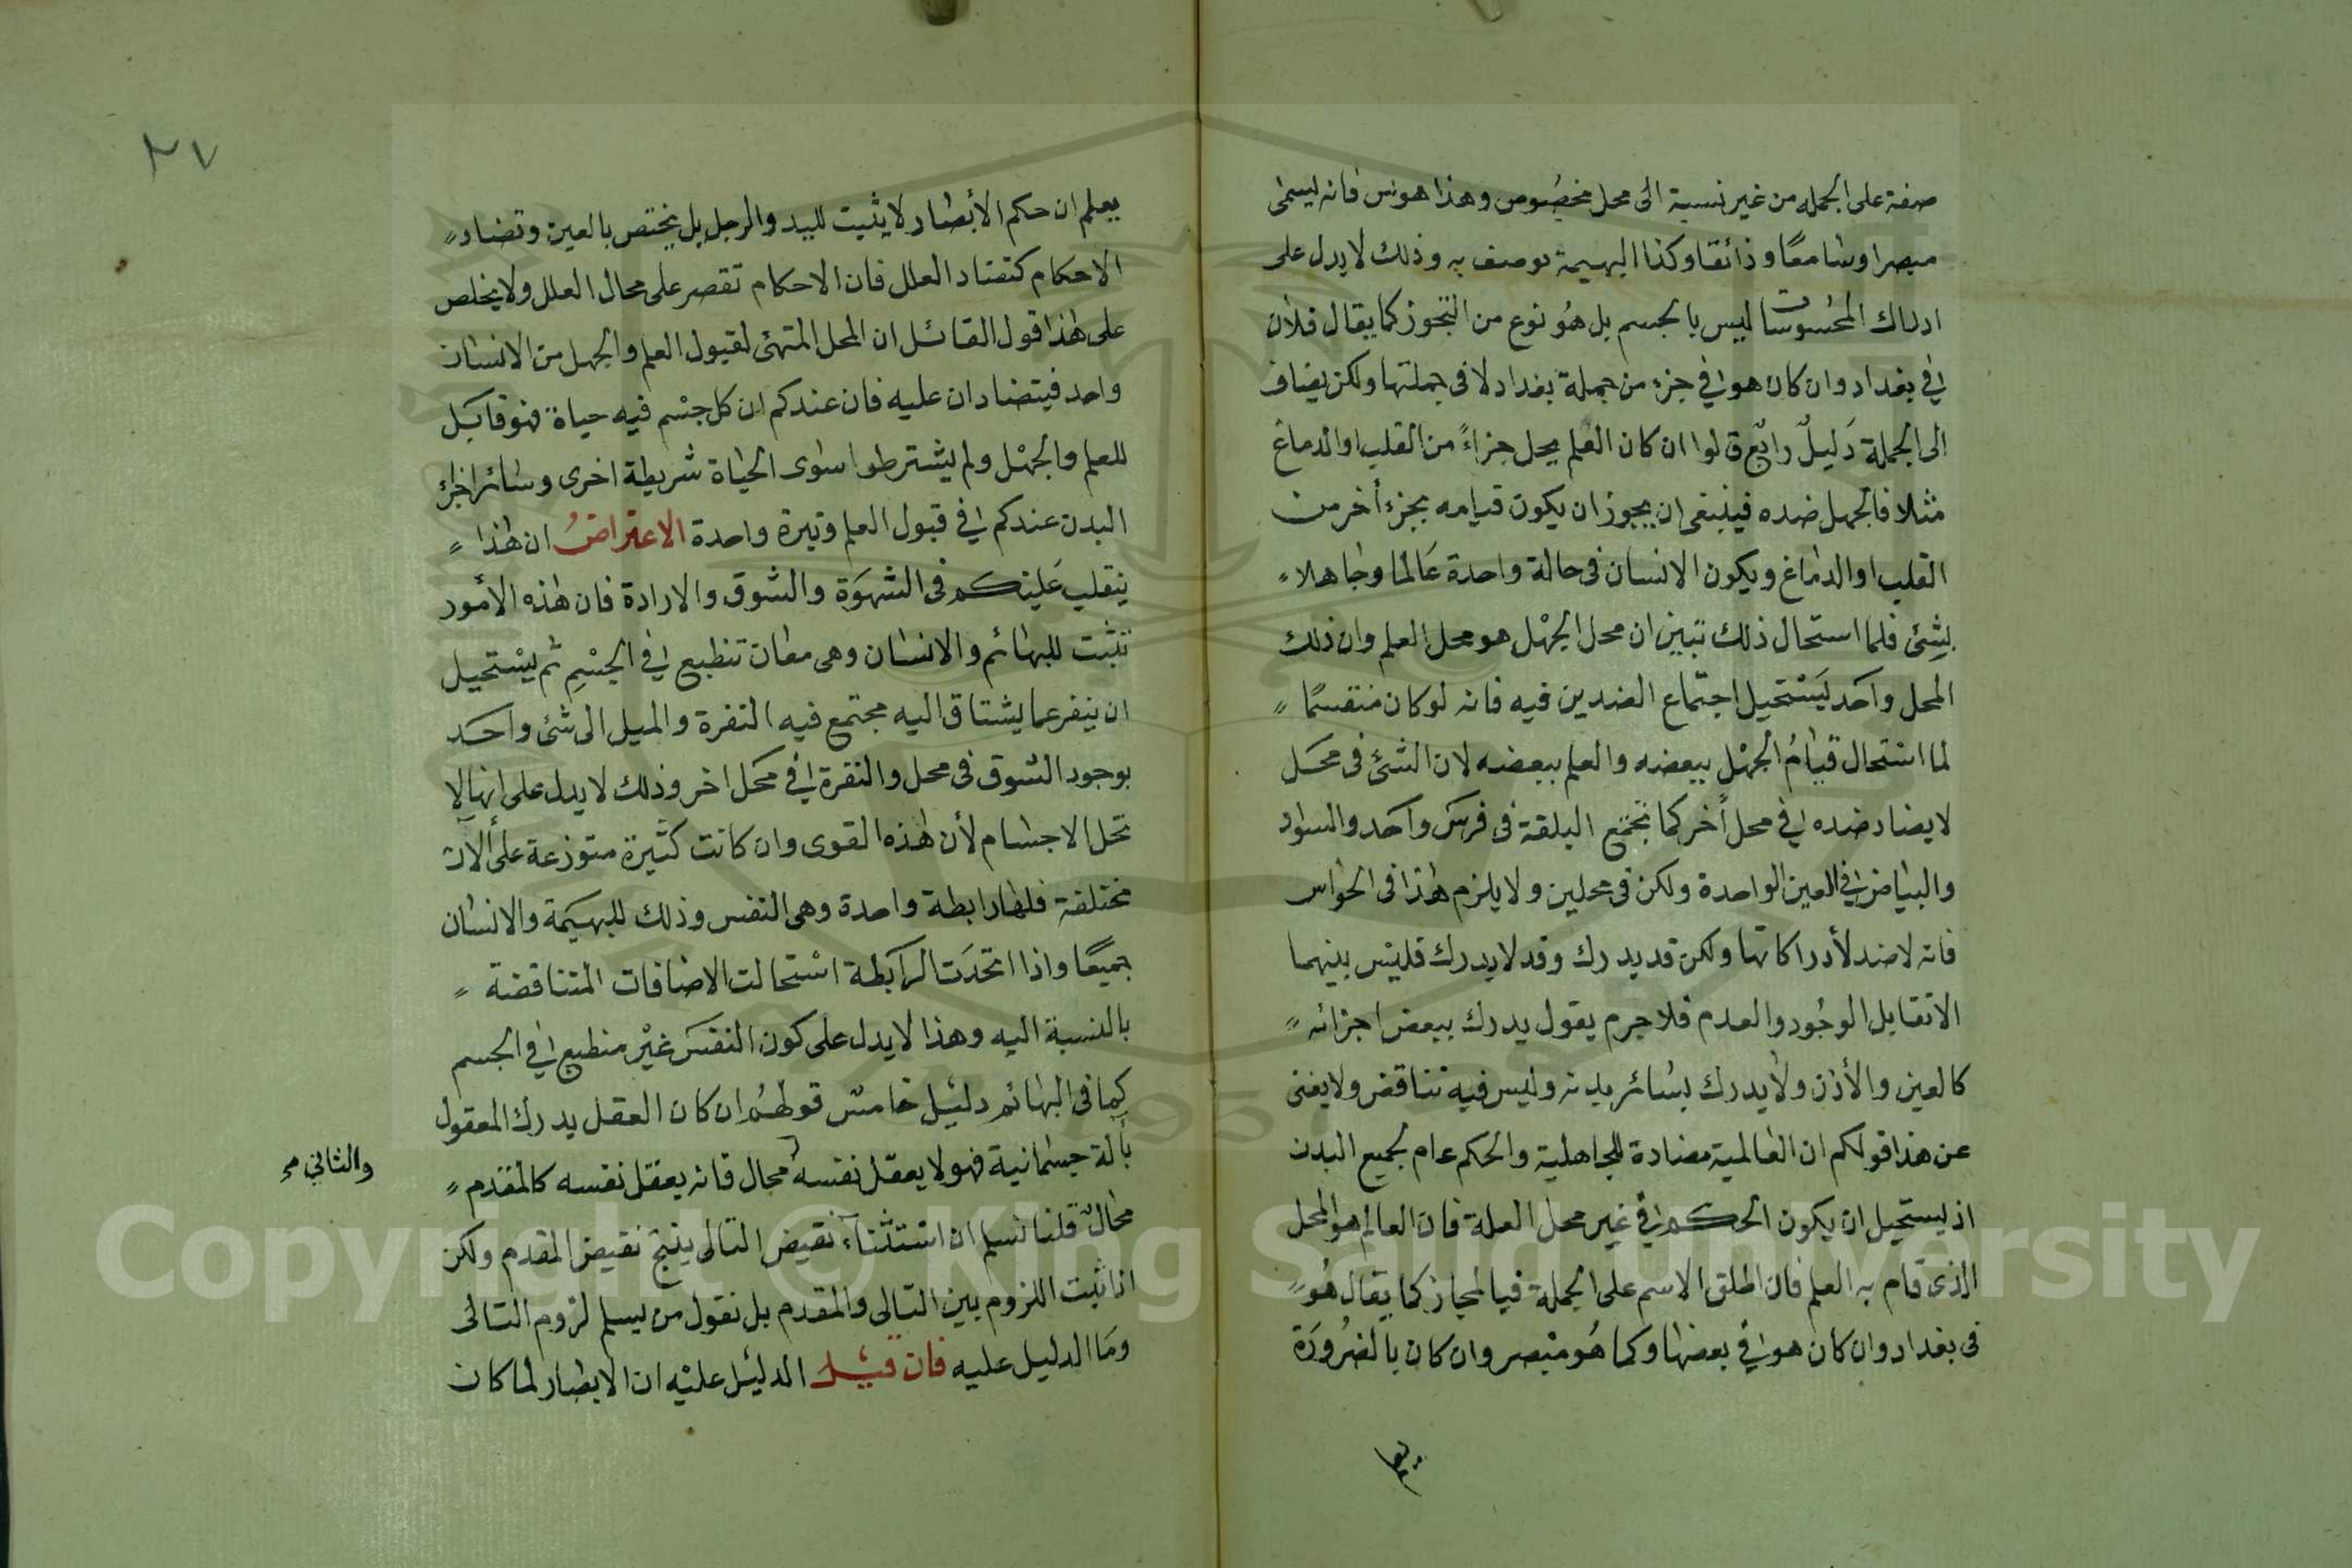 صفة على الجملة من غير نسبة الى محل مخصوص وهذا هوس فانه ليسمى
مبصرا وسامعًا وذائقا وكذا البهيمة توصف به وذلك لا يدل على
ادراك المحسوسات ليس بالجسم بل هُو نوع من التجوز كما يقال فلان
في بغداد وان كان هو في جزء من جملة بغداد لا فى جملتها ولكن يضاف
الى الجملة دَليلٌ رابع قالوا ان كان العلم يحل جزاءً من القلب او الدماغ
مثلا فالجهل ضده فينبغى ان يجوز ان يكون قيامه بجزء أخر من
القلب او الدماغ ويكون الانسان فى حالة واحدة عَالما وجاهلا
بشِئ فلما استحال ذلك تبين ان محل الجهْل هو محل العلم وان ذلك
المحل واحَد يَسْتحيل اجتماع الضدين فيه فانه لو كان منقسمًا
لما استحال قيامُ الجهْل ببعضه والعلم ببعضه لان الشئ فى محَل
لا يضاد ضده في محل أخر كما تجتمع البلقة فى فرسَ واحَد والسواد
والبياض في العين الواحدة ولكن فى محلين ولا يلزم هذا فى الحواس
فانه لا ضد لأدراكاتها ولكن قد يدرك وقد لا يدرك فليْس بينهما
الا تقابل الوجُود والعدم فلا جرم يقول يدرك ببعض اجزائه
كالعين والأذن ولا يدرك بسُائر بدنه وليس فيه تناقض ولا يغنى
عن هذا قولكم ان العالمية مضادة للجاهلية والحكم عام لجميع البدن
اذ ليستحيل ان يكون الحكم في غير محل العلة فان العالم هو المحل
الذى قام به العلم فان اطلق الاسم على الجملة فبالمجاز كما يقال هُو
فى بغداد وان كان هو في بعضها وكما هُو مبْصر وان كان بالضرُورَة
يعلم
٢٧
يعلم ان حكم الأبصار لا يثبت لليد والرجل بل يختص بالعين وتضاد
الاحكام كتضاد العلل فان الاحكام تقصر على محال العلل ولا يخلص
على هذا قول القائل ان المحل المتهئ لقبول العلم والجهل من الانسان
واحد فيتضادان عليه فان عندكم ان كل جسْم فيه حياة فهو قابَل
للعلم والجهْل ولم يشترطوا سوى الحياة شريطة اخرى وسائر اجزاء
البدن عندكم في قبول العلم وتيرة واحدة الاعتراضُ ان هذا
ينقلب عَليْكم فى الشهوَة والشوق والارادة فان هذه الأمور
تثبت للبهائم والانسان وهى معان تنطبع في الجسْمِ ثم يسْتحيل
ان ينفر عما يشتاق اليه مجتمع فيه النفرة والميل الى شئ واحَد
بوجود الشوق فى محل والنفرة في محَل اخر وذلك لا يدل على انها لا
تحل الاجسام لأن هذه القوى وان كانت كثيرة متوزعة على ألات
مختلفة فلها رابطة واحدة وهى النفس وذلك للبهيَمة والانسان
جميعًا واذا اتحدَت الرابَطة اسْتحالت الاضافات المتناقضة
بالنسبة اليه وهذا لا يدل على كون النفسَ غيْر منطبع في الجسم
كما فى البهائم دليْل خامس قولهُم ان كان العقل يدرك المعقول
بألة جسمانية فهو لا يعقل نفسه محال فانه يعقل نفسه كالمقدم
والثاني مح
محالٌ قلنا نسلم ان استثناء نقيض التالى ينتج نقيض المقدم ولكن
اذا ثبت اللزوم بين التالى والمقدم بل نقول من يسلم لزوم التالى
ومَا الدليل عليه فان قيْل الدليْل عليْه ان الابصار لما كان